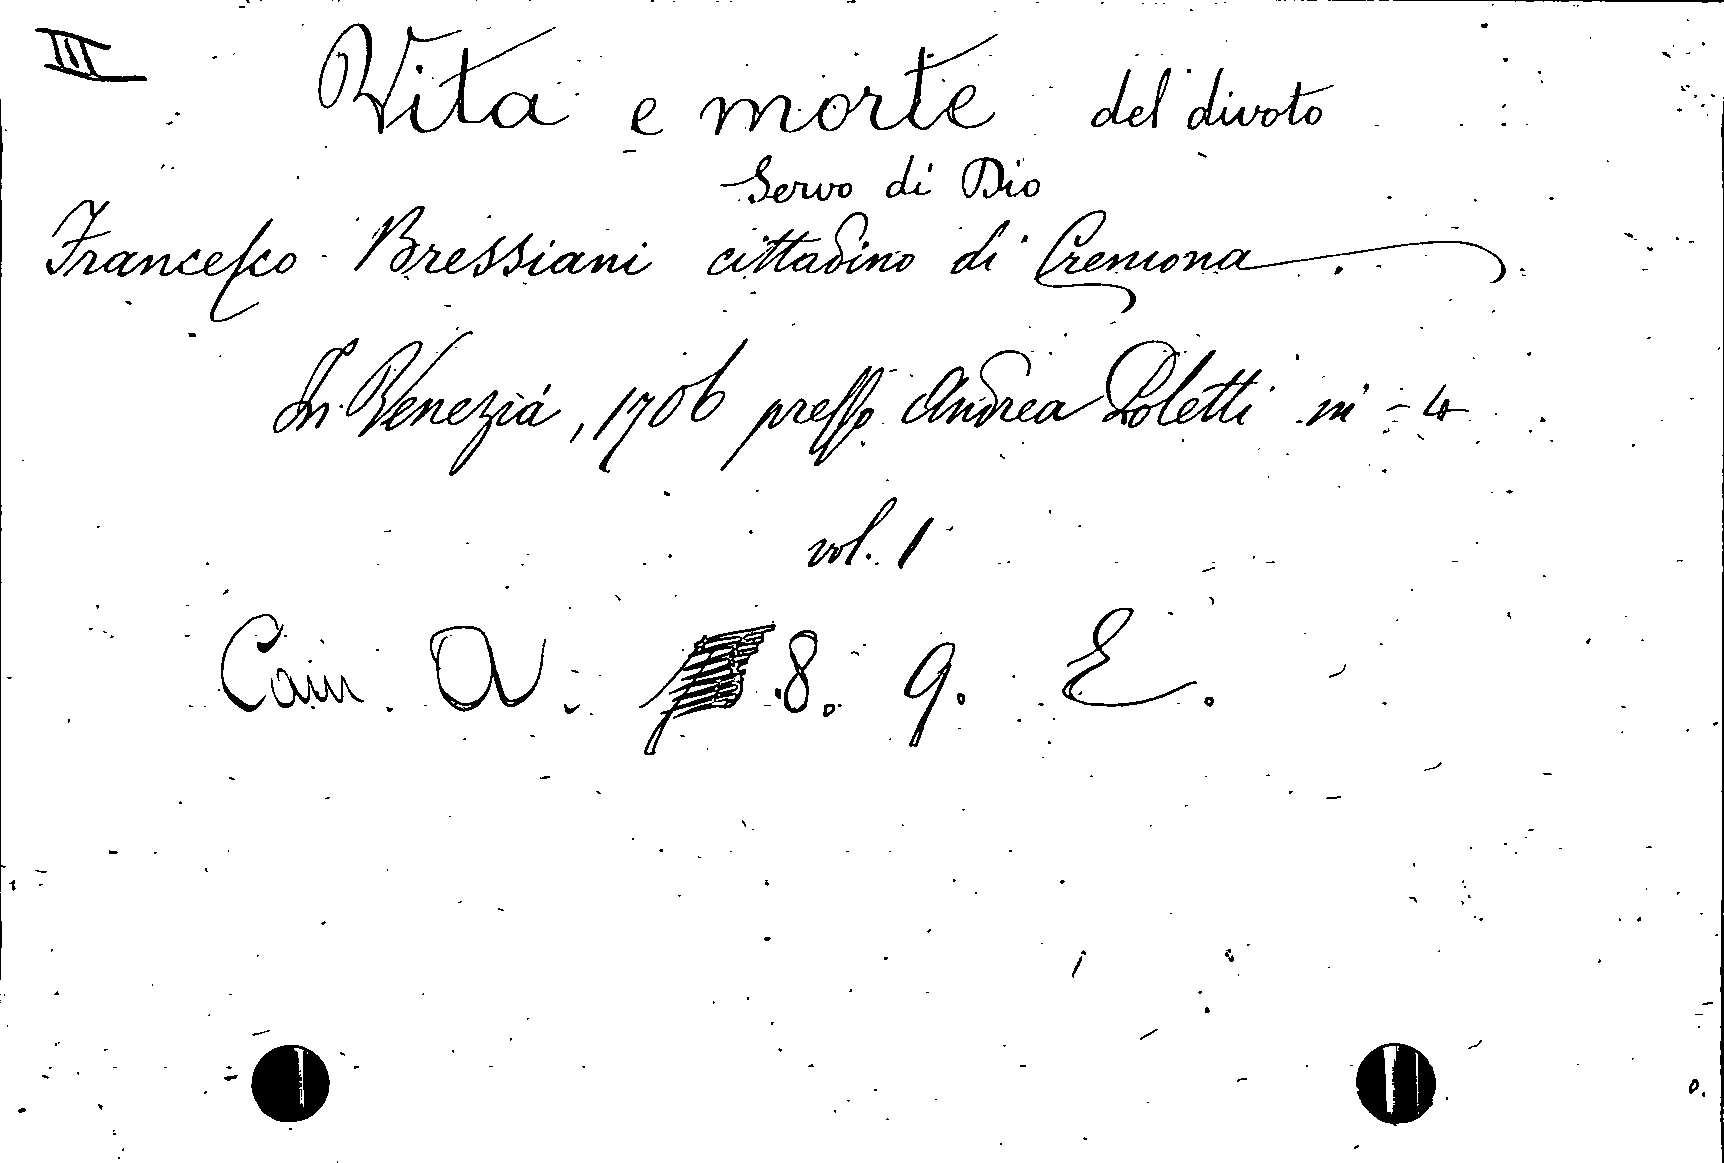 III
Vita e morte del divoto
Servo di Dio
Francesco Bressiani cittadino di Cremona.
In Venezia, 1706 presso Andrea Poletti in-4
vol. 1
Cam. A. 8. 9. E.